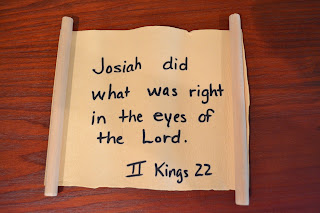 Josiah did
what was right
in the eyes of
the Lord.
II Kings 22